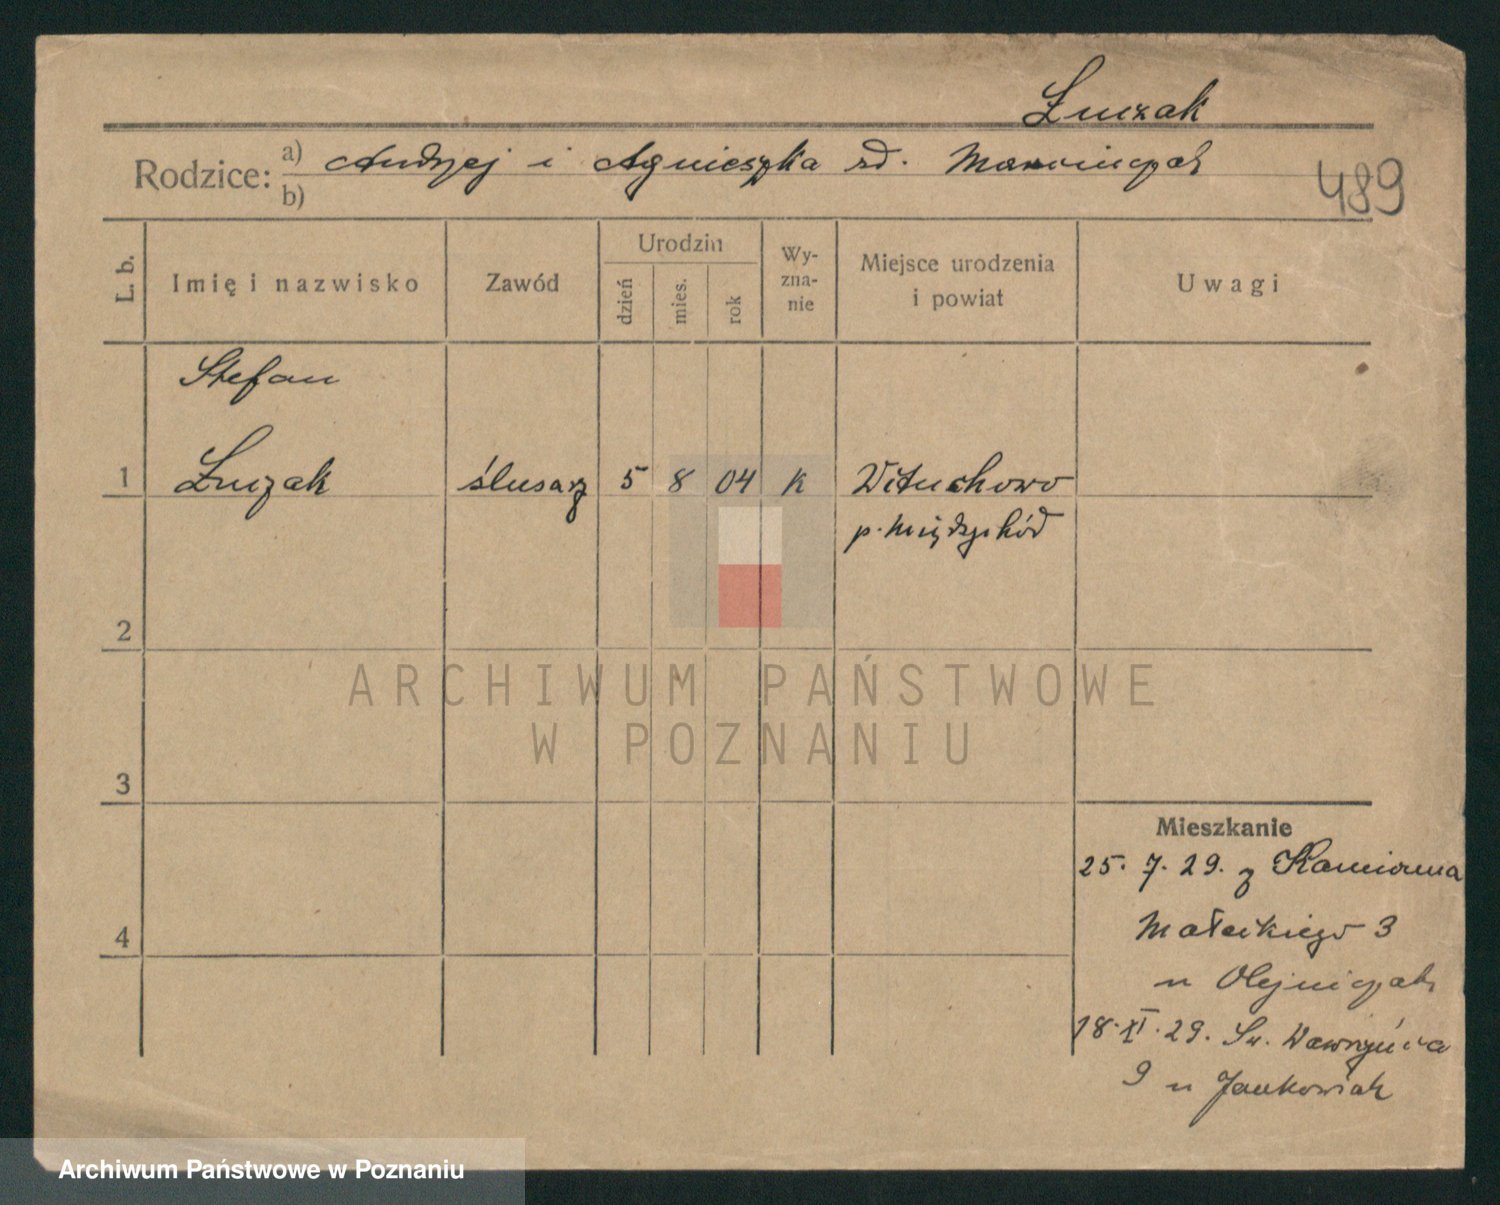 Łuczak
Rodzice: a) Andrzej i Agnieszka zd. Marciniak
b)
489
L. b. Imię i nazwisko Zawód Urodzin Wy-zna-nie Miejsce urodzenia i powiat Uwagi
dzień mies. rok
Stefan
1 Łuczak ślusarz 5 8 04 k Wituchowo
p. Międzychód
2
ARCHIWUM PAŃSTWOWE
W POZNANIU
3
Mieszkanie
25. 7. 29. z Kamionna
Małeckiego 3
4
u Olejniczak
18. XI. 29. Św. Wawrzyńca
9 u Jankowiak
Archiwum Państwowe w Poznaniu